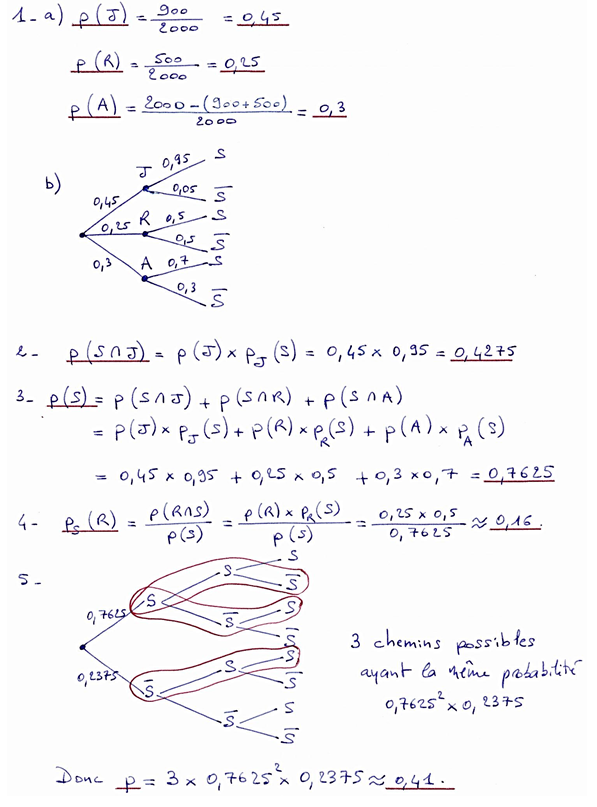 1- a) p(J) = 900/2000 = 0,45
p(R) = 500/2000 = 0,25
p(A) = 2000-(900+500)/2000 = 0,3
b)
0,95 S
J
0,05 S̅
0,45
0,25 R 0,5 S
0,5 S̅
0,3 A 0,7 S
0,3 S̅
2- p(S∩J) = p(J) × p_J(S) = 0,45 × 0,95 = 0,4275
3- p(S) = p(S∩J) + p(S∩R) + p(S∩A)
= p(J) × p_J(S) + p(R) × p_R(S) + p(A) × p_A(S)
= 0,45 × 0,95 + 0,25 × 0,5 + 0,3 × 0,7 = 0,7625
4- p_S(R) = p(R∩S)/p(S) = p(R) × p_R(S)/p(S) = 0,25 × 0,5/0,7625 ≈ 0,16.
5-
S
S
S̅
0,7625 S
S
S̅
S̅
0,2375 S̅
S
S
S̅
S̅
S
S̅
3 chemins possibles
ayant la même probabilité
0,7625² × 0,2375
Donc p = 3 × 0,7625² × 0,2375 ≈ 0,41.